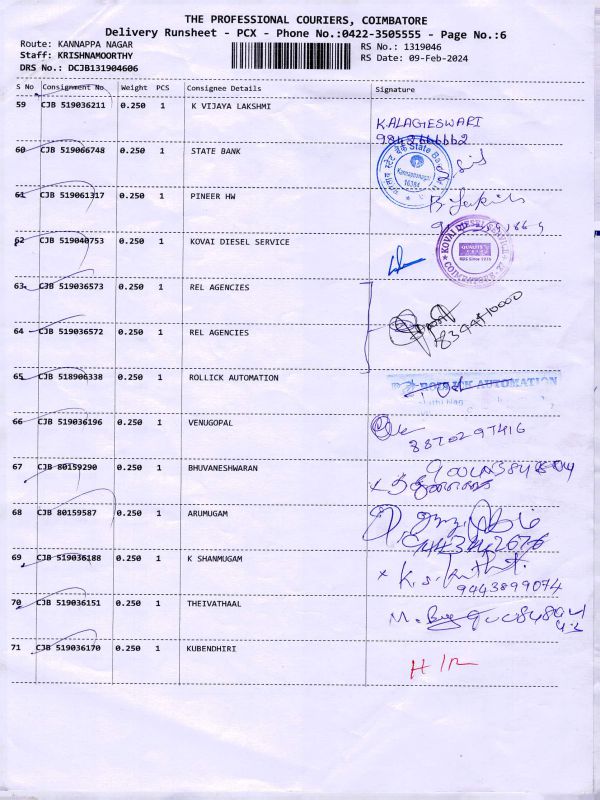 THE PROFESSIONAL COURIERS, COIMBATORE
Delivery Runsheet - PCX - Phone No.:0422-3505555 - Page No.:6
Route: KANNAPPA NAGAR
Staff: KRISHNAMOORTHY
DRS No.: DCJB131904606
RS No.: 1319046
RS Date: 09-Feb-2024
S No Consignment No Weight PCS Consignee Details Signature
59 CJB 519036211 0.250 1 K VIJAYA LAKSHMI
KALAGIESWARI
60 CJB 519066748 0.250 1 STATE BANK
State Bank
Kannappanagar
16384
61 CJB 519061317 0.250 1 PINEER HW
62 CJB 519040753 0.250 1 KOVAI DIESEL SERVICE
KOVAI DIESEL SERVICE
QUALITY
COIMBATORE
63 CJB 519036573 0.250 1 REL AGENCIES
64 CJB 519036572 0.250 1 REL AGENCIES
65 CJB 518906338 0.250 1 ROLLICK AUTOMATION
ROLLICK AUTOMATION
66 CJB 519036196 0.250 1 VENUGOPAL
67 CJB 80159290 0.250 1 BHUVANESHWARAN
68 CJB 80159587 0.250 1 ARUMUGAM
69 CJB 519036188 0.250 1 K SHANMUGAM
9443899074
70 CJB 519036151 0.250 1 THEIVATHAAL
71 CJB 519036170 0.250 1 KUBENDHIRI